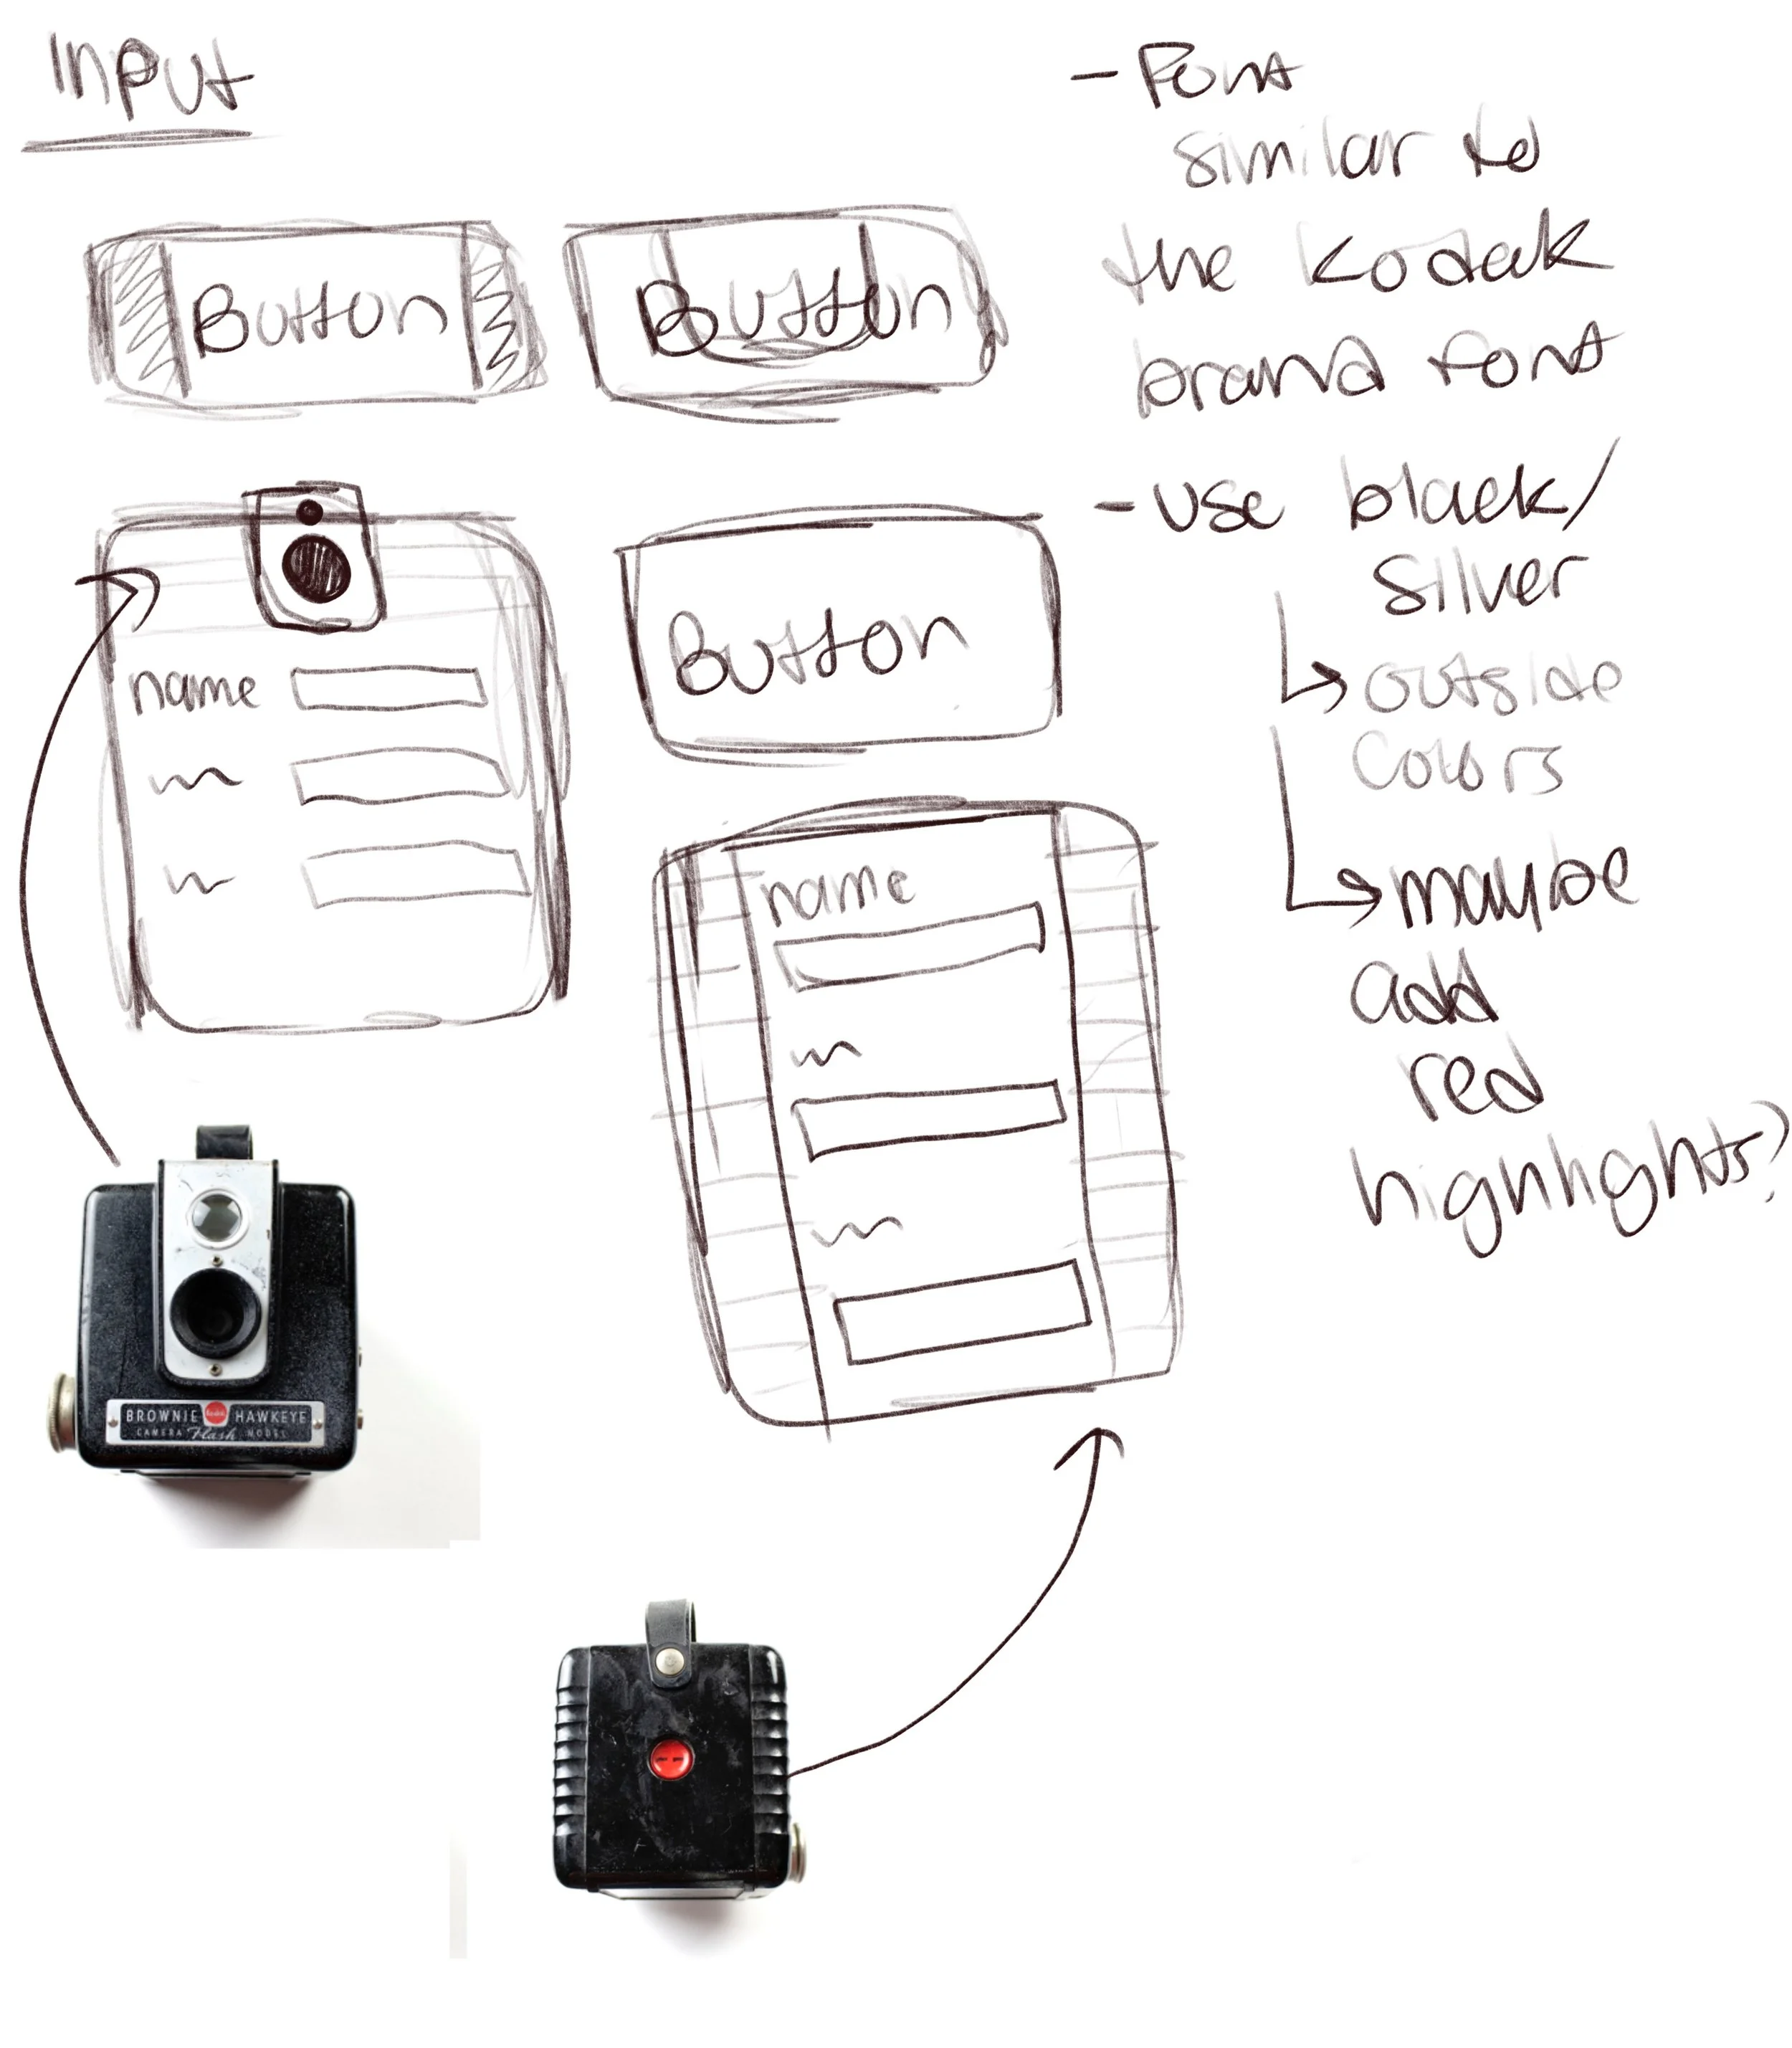 Input
- Font
similar to
the Kodak
brand font
- use black/
silver
outside
colors
maybe
add
red
highlights?
Button
Button
Button
name
name
BROWNIE Kodak HAWKEYE
CAMERA Flash MODEL